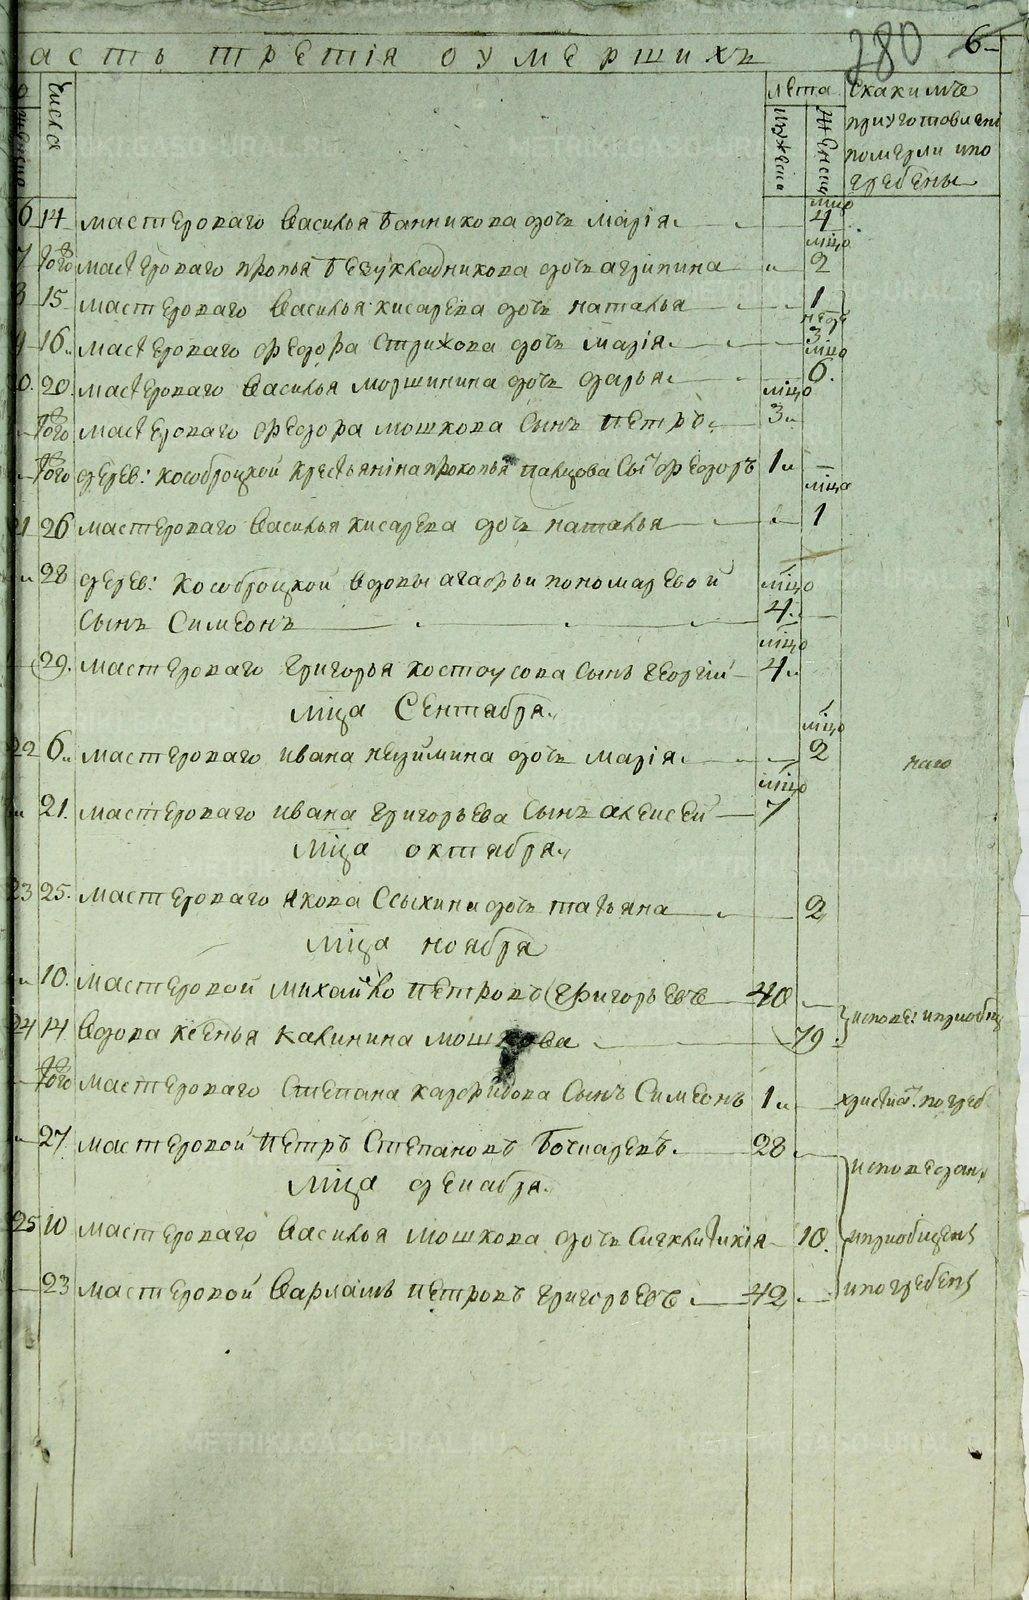 280 6
асть третїя оумершихъ
числа
лѣта
мужеска
женска
скакимъ
приуготовлені
померли ипо
гребены
мцо
14 мастероваго Василья Банникова дочь марїя 4
мцо
7 того мастероваго прокопья Безукладникова дочь агрипина 2
15 мастероваго Василья кисарева дочь наталья 1
неде
9 16 мастероваго федора Стрихова дочь марїя 3
мцо
0. 20. мастероваго Василья моршинина дочь дарья 6.
мцо
того мастероваго федора мошкова сынъ петръ 3
того дерев: кособроцкой крестьянина прокопья палцова сынъ федоръ 1
мцо
21 26 мастероваго Василья кисарева дочь наталья 1
28 дерев: Кособроцкой вдовы агафьи пономаревой
мцо
сынъ Симеонъ 4
мцо
29. мастероваго григорья костоусова сынъ георгїй 4
мца Сентабря
мцо
22 6 мастероваго ивана незимина дочь марїя 2
наго
мцо
21. мастероваго ивана григорьева сынъ алексей 7
мца октября
23 25. мастероваго якова Ссыхина дочь татьяна 2
мца ноября
10. мастеровой михайло петровъ григорьевъ 40
24 14 вдова ксенья калинина мошкова 79
испове: иприобщ
того мастероваго степана карфидова сынъ Симеонъ 1
христиа. погреб
27 мастеровой петръ Степановъ Бочкаревъ 28
исповедан
мца декабря
25 10 мастероваго Василья мошкова дочь Сигклитикїя 10.
иприобщены
23 мастеровой Варламъ петровъ григорьевъ 42
ипогребены
METRIKI.GASO-URAL.RU